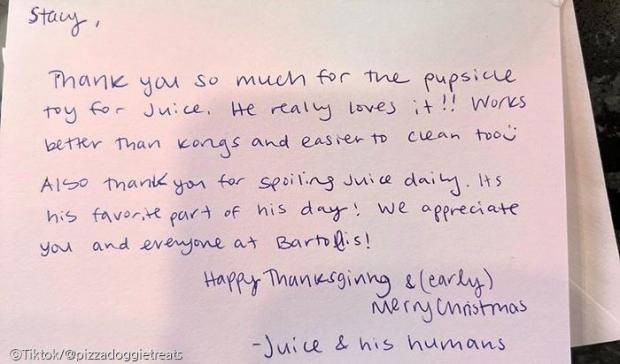 Stacy,
Thank you so much for the pupsicle
toy for Juice. He really loves it!! Works
better than kongs and easier to clean too
Also thank you for spoiling Juice daily. Its
his favorite part of his day! We appreciate
you and everyone at Bartolis!
Happy Thanksgiving & (early)
Merry Christmas
-Juice & his humans
©Tiktok/@pizzadoggietreats